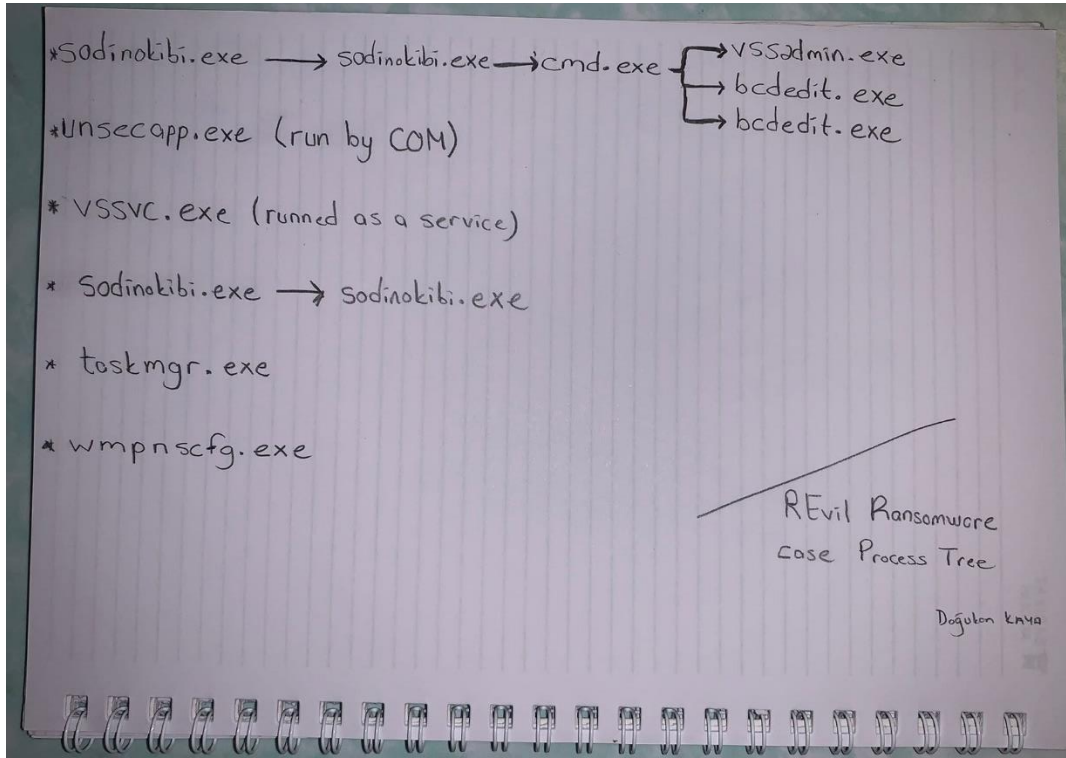 *sodinokibi.exe → sodinokibi.exe → cmd.exe → vssadmin.exe
→ bcdedit.exe
→ bcdedit.exe
*Unsecapp.exe (run by COM)
* VSSVC.exe (runned as a service)
* Sodinokibi.exe → sodinokibi.exe
* taskmgr.exe
* wmpnscfg.exe
REvil Ransomware
case Process Tree
Doğukan KAYA